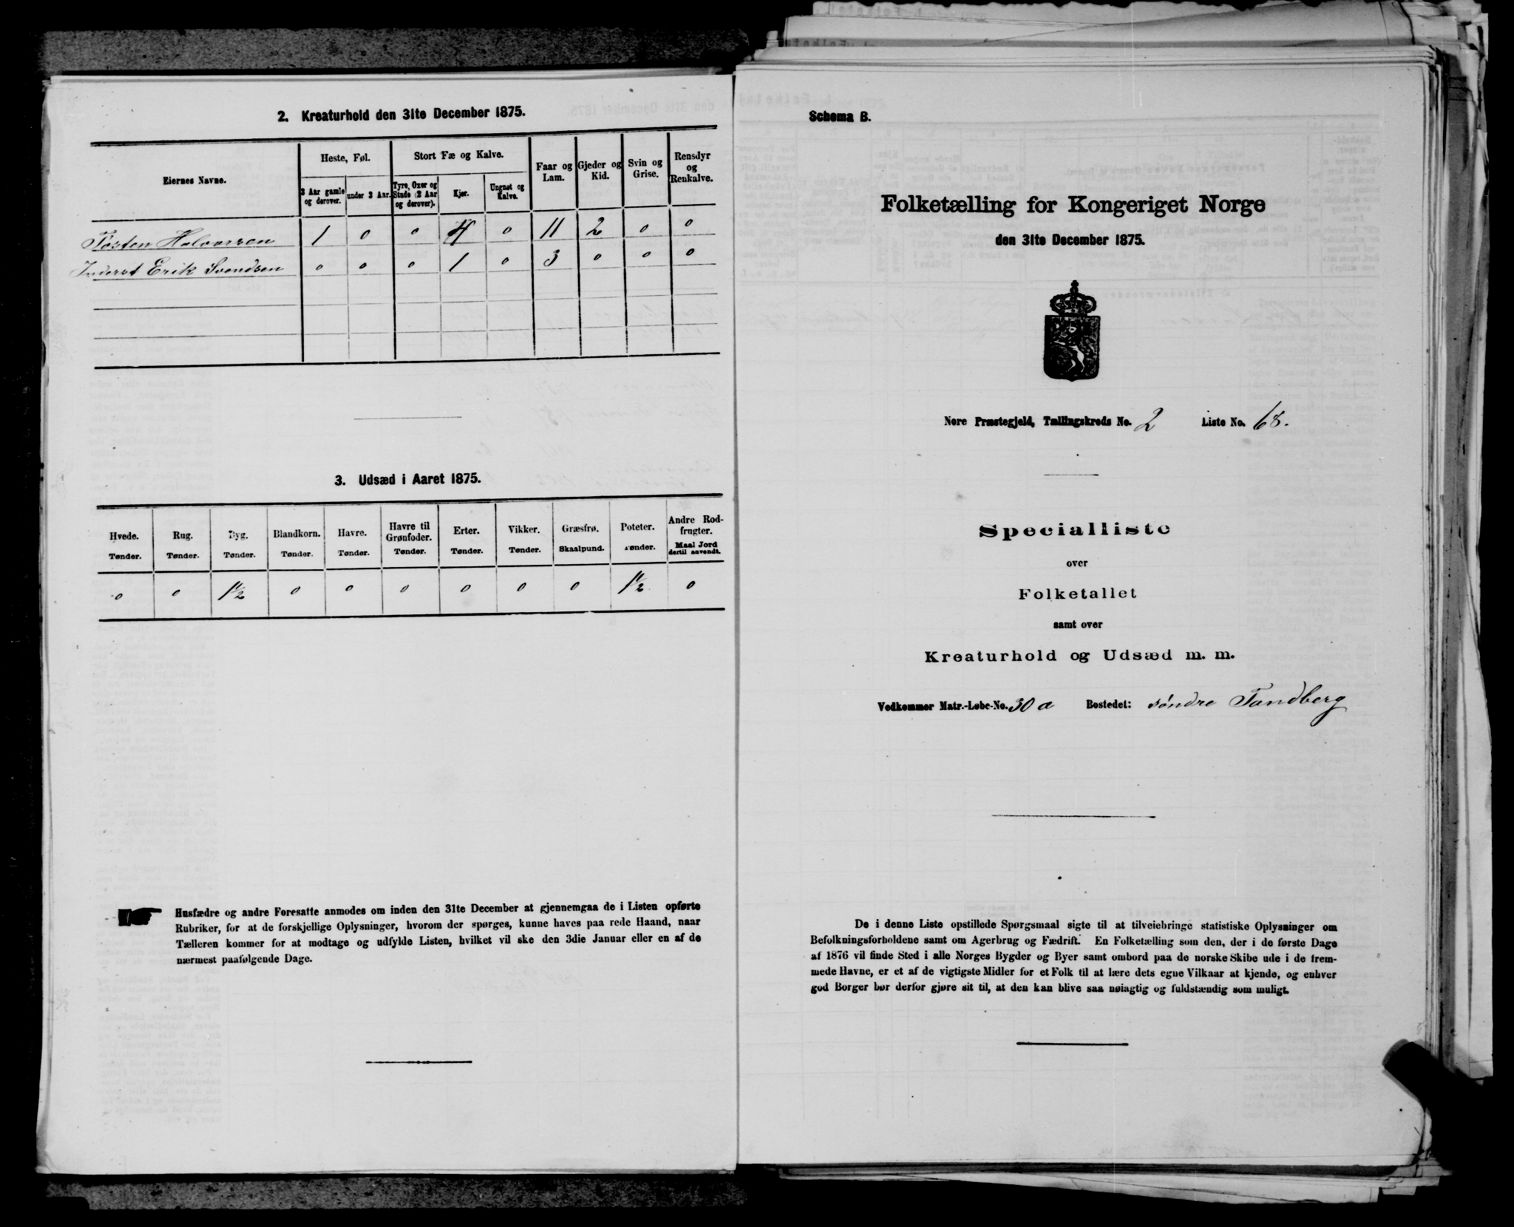 2. Kreaturhold den 31te December 1875.
Eiernes Navne.
Heste, Føl.
Stort Fæ og Kalve.
Faar og Lam.
Gjeder og Kid.
Svin og Grise.
Rensdyr og Renkalve.
3 Aar gamle og derover.
under 3 Aar.
Tyre, Oxer og Stude (2 Aar og derover).
Kjør.
Ungnøt og Kalve.
Tosten Halvorsen 1 0 0 4 0 11 2 0 0
Inderst Erik Svendsen 0 0 0 1 0 3 0 0 0
3. Udsæd i Aaret 1875.
Hvede. Rug. Byg. Blandkorn. Havre. Havre til Grønfoder. Erter. Vikker. Græsfrø. Poteter. Andre Rodfrugter.
Tønder. Tønder. Tønder. Tønder. Tønder. Tønder. Tønder. Tønder. Skaalpund. Tønder. Maal Jord dertil anvendt.
0 0 1½ 0 0 0 0 0 0 1½ 0
Husfædre og andre Foresatte anmodes om inden den 31te December at gjennemgaa de i Listen opførte
Rubriker, for at de forskjellige Oplysninger, hvorom der spørges, kunne haves paa rede Haand, naar
Tælleren kommer for at modtage og udfylde Listen, hvilket vil ske den 3die Januar eller en af de
nærmest paafølgende Dage.
Schema B.
Folketælling for Kongeriget Norge
den 31te December 1875.
Nore Præstegjeld, Tællingskreds No. 2 Liste No. 68.
Specialliste
over
Folketallet
samt over
Kreaturhold og Udsæd m. m.
Vedkommer Matr.-Løbe-No. 30 a Bostedet: søndre Tandberg
De i denne Liste opstillede Spørgsmaal sigte til at tilveiebringe statistiske Oplysninger om
Befolkningsforholdene samt om Agerbrug og Fædrift. En Folketælling som den, der i de første Dage
af 1876 vil finde Sted i alle Norges Bygder og Byer samt ombord paa de norske Skibe ude i de frem-
mede Havne, er et af de vigtigste Midler for et Folk til at lære dets egne Vilkaar at kjende, og enhver
god Borger bør derfor gjøre sit til, at den kan blive saa nøiagtig og fuldstændig som muligt.